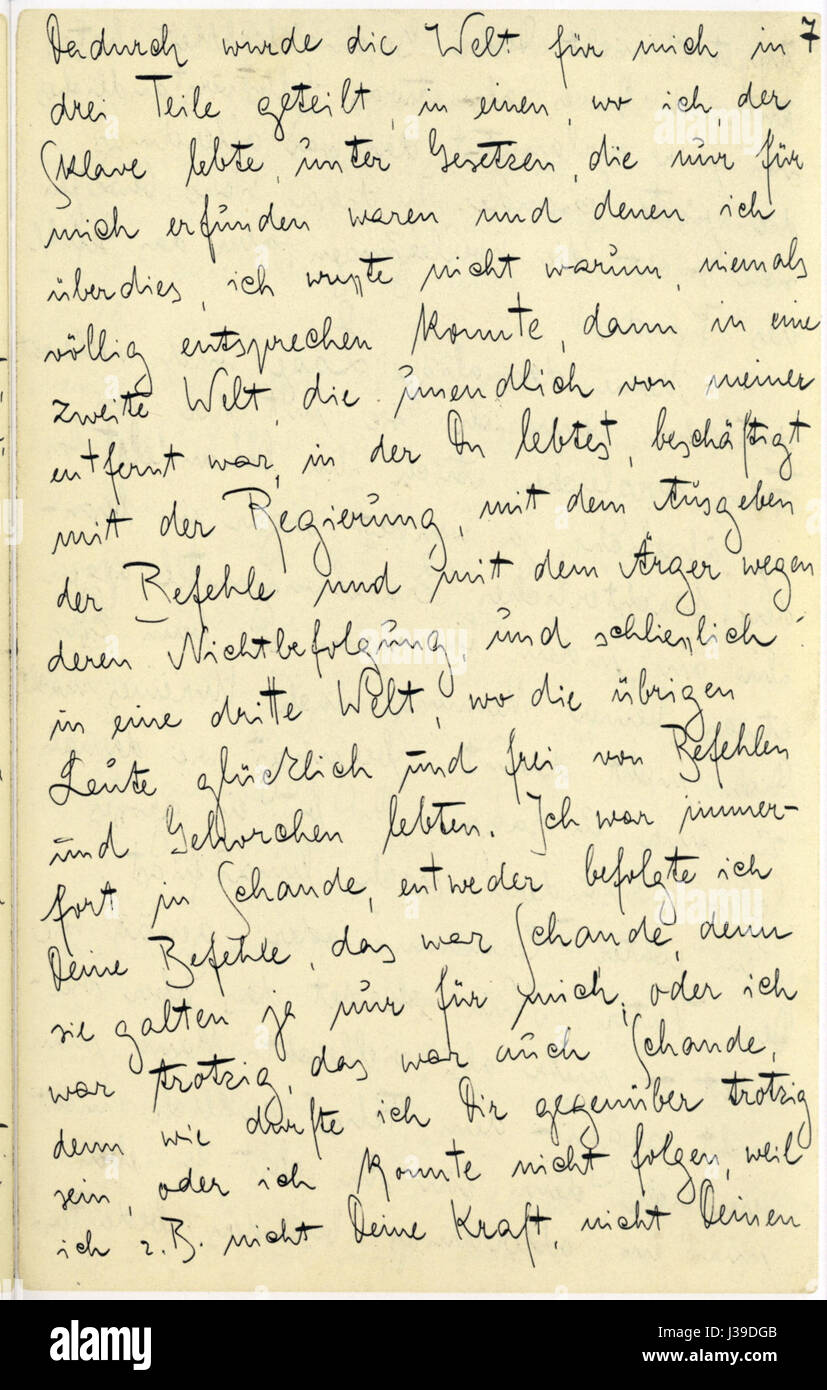 Dadurch wurde die Welt für mich in 7
drei Teile geteilt, in einen, wo ich, der
Sklave lebte, unter Gesetzen, die nur für
mich erfunden waren und denen ich
überdies, ich wusste nicht warum, niemals
völlig entsprechen konnte, dann in eine
zweite Welt, die unendlich von meiner
entfernt war, in der Du lebtest, beschäftigt
mit der Regierung, mit dem Ausgeben
der Befehle und mit dem Ärger wegen
deren Nichtbefolgung, und schliesslich
in eine dritte Welt, wo die übrigen
Leute glücklich und frei von Befehlen
und Gehorchen lebten. Ich war immer-
fort in Schande, entweder befolgte ich
Deine Befehle, das war Schande, denn
sie galten ja nur für mich; oder ich
war trotzig, das war auch Schande,
denn wie durfte ich Dir gegenüber trotzig
sein, oder ich konnte nicht folgen, weil
ich z. B. nicht Deine Kraft, nicht Deinen
alamy
alamy
Image ID: J39DGB
www.alamy.com